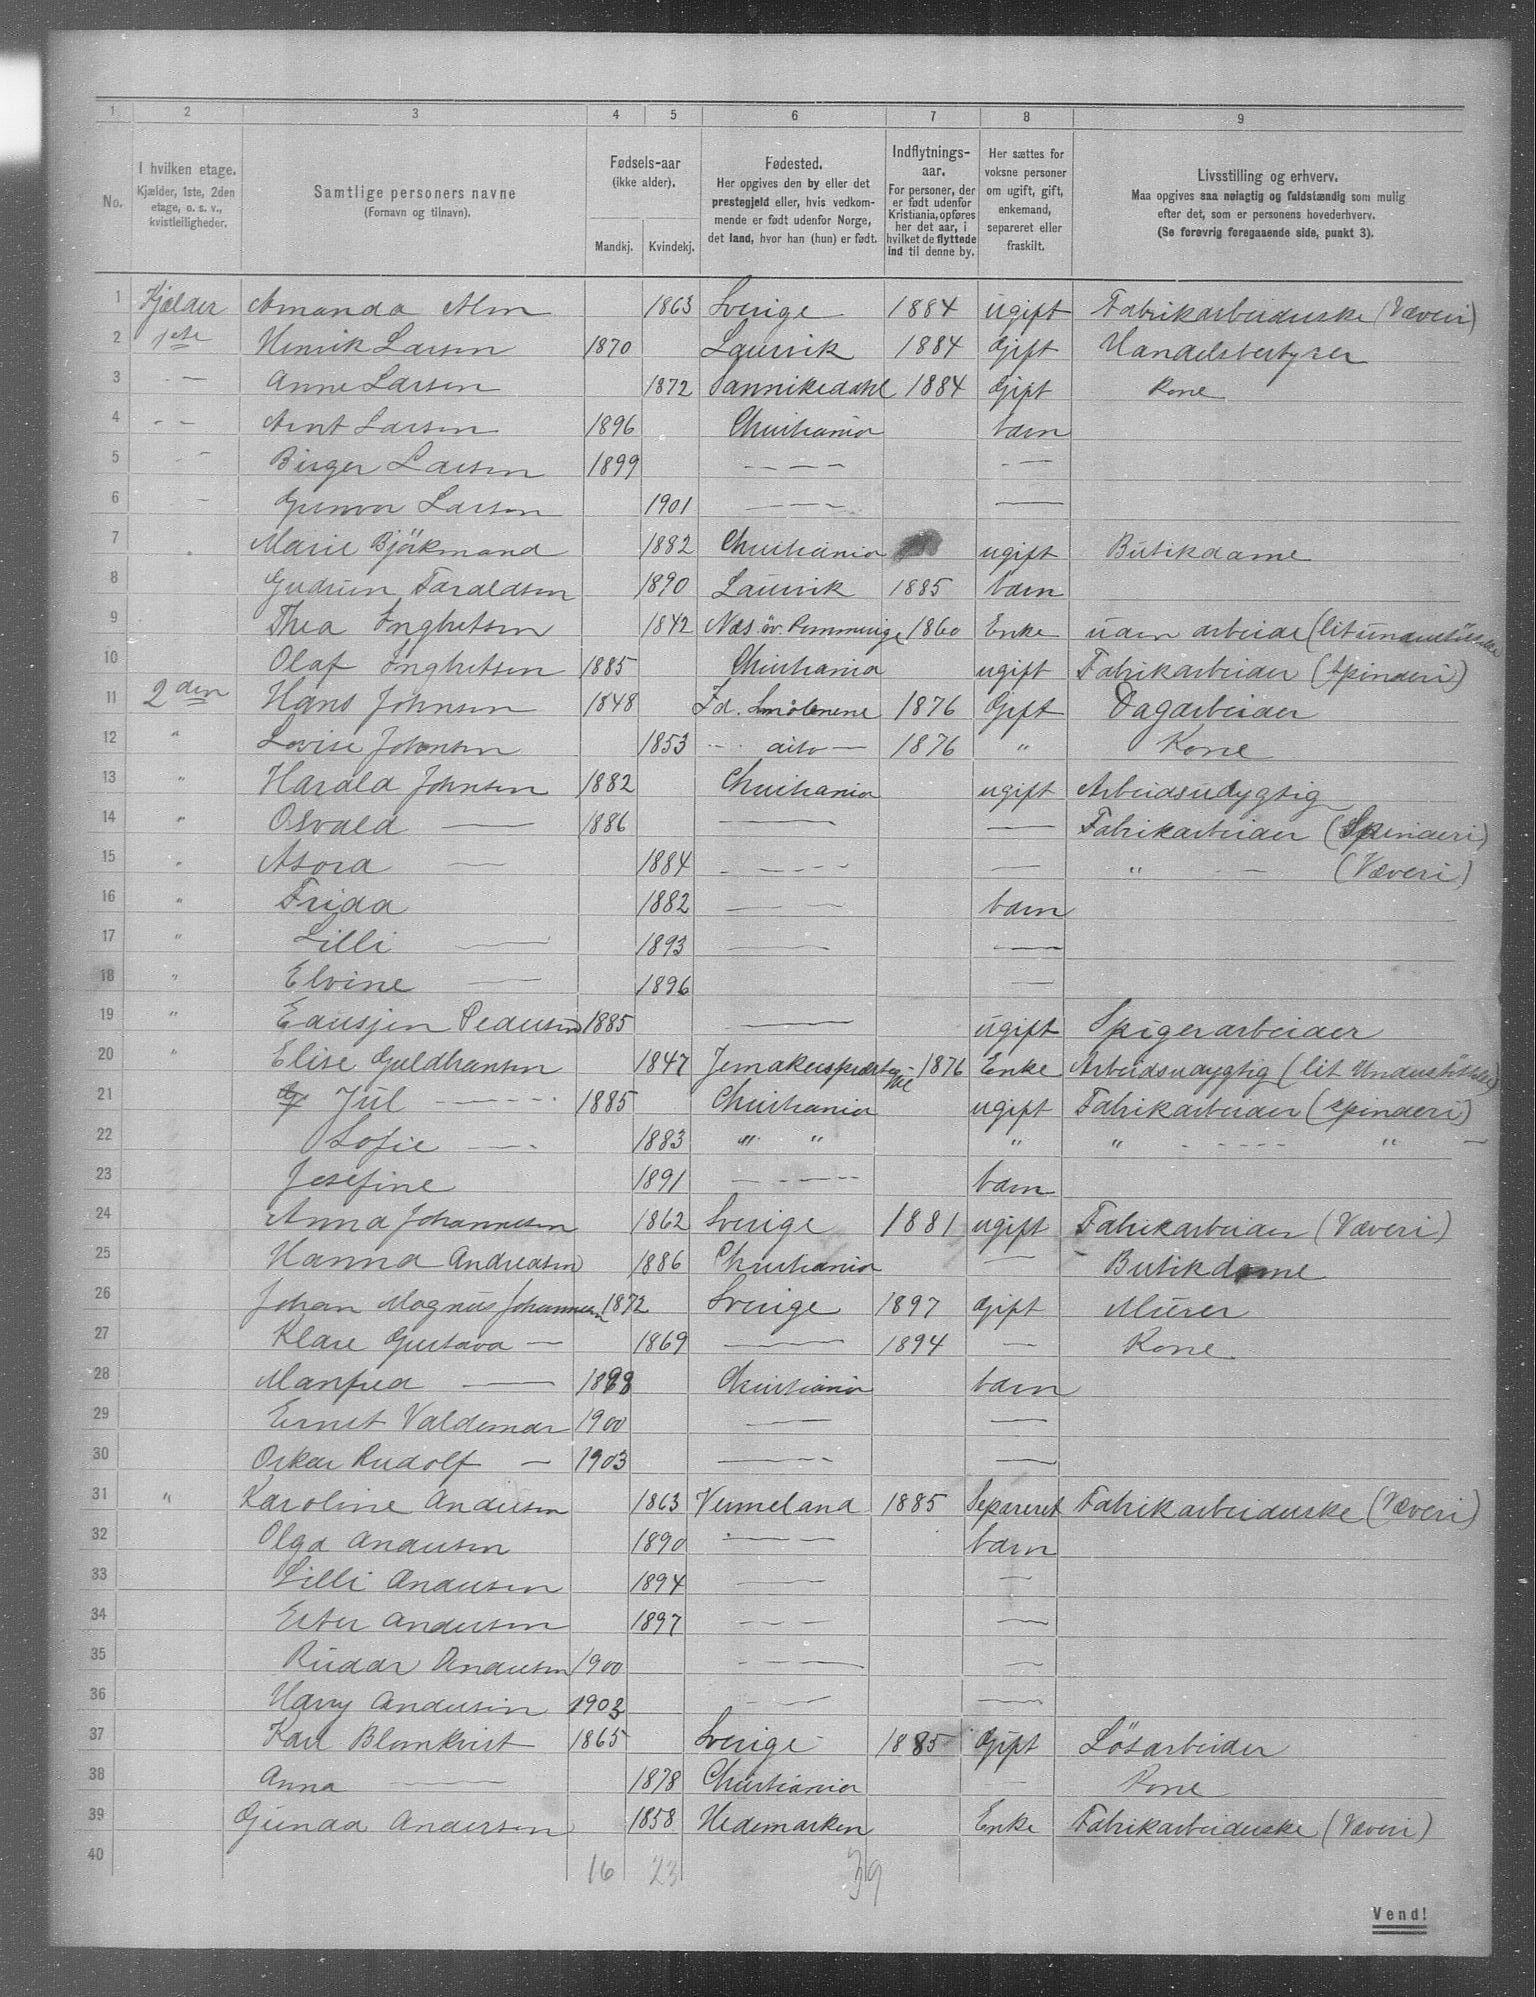 1 2 3 4 5 6 7 8 9
No.
I hvilken etage.
Kjælder, 1ste, 2den
etage, o. s. v.,
kvistleiligheder.
Samtlige personers navne
(Fornavn og tilnavn).
Fødsels-aar
(ikke alder).
Mandkj. Kvindekj.
Fødested.
Her opgives den by eller det
prestegjeld eller, hvis vedkom-
mende er født udenfor Norge,
det land, hvor han (hun) er født.
Indflytnings-
aar.
For personer, der
er født udenfor
Kristiania, opføres
her det aar, i
hvilket de flyttede
ind til denne by.
Her sættes for
voksne personer
om ugift, gift,
enkemand,
separeret eller
fraskilt.
Livsstilling og erhverv.
Maa opgives saa nøiagtig og fuldstændig som mulig
efter det, som er personens hovederhverv.
(Se forøvrig foregaaende side, punkt 3).
1 Kjælder Amanda Alm 1863 Sverige 1884 ugift Fabrikarbeiderske (Væveri)
2 1ste Henrik Larsen 1870 Laurvik 1884 Gift Handelsbestyrer
3 - — Anne Larsen 1872 Sannikedahl 1884 Gift Kone
4 - - Arnt Larsen 1896 Christiania barn
5 - Birger Larsen 1899 — — — - —
6 - Gunvor Larsen 1901 — — — —
7 Marie Björkmand 1882 Christiania ugift Butikdame
8 Gudrun Faraldsen 1890 Laurvik 1885 barn
9 Thea Ingbretsen 1842 Næs öv. Rommerige 1860 Enke uden arbeide (lit understöttelse
10 Olaf Ingbretsen 1885 Christiania ugift Fabrikarbeider (Spinderi)
11 2den Hans Johnsen 1848 Fd. Smålenene 1876 Gift Dagarbeider
12 " Lovise Johnsen 1853 - - dito — 1876 " Kone
13 " Harald Johnsen 1882 Christiania ugift Arbeidsudygtig
14 " Osvald — 1886 — — Fabrikarbeider (Spinderi)
15 " Asora — 1884 - - - - — " - — (Væveri)
16 " Frida 1882 — — — barn
17 " Lilli — 1893 — —
18 " Elvine — 1896 —
19 " Pedersen 1885 — ugift Spigerarbeider
20 " Elise Guldbransen 1847 1876 Enke Arbeidsudygtig (lit Understöttelse)
21 Jul - - - - 1885 Christiania ugift Fabrikarbeider (Spinderi)
22 Sofie — - 1883 " " " " - - - - - " —
23 Josefine 1891 — - — - - barn
24 Anna Johannesen 1862 Sverige 1881 ugift Fabrikarbeider (Væveri)
25 Hanna Andreasen 1886 Christiania — Butikdame
26 Johan Magnus Johannesen 1872 Sverige 1897 Gift Murer
27 Klare Gustava — 1869 — 1894 — Kone
28 Manfred — 1898 Christiania barn
29 Ernst Valdemar 1900 — — —
30 Oskar Rudolf — 1903 — - - - —
31 " Karoline Andersen 1863 Vermeland 1885 Separeret Fabrikarbeiderske (Væveri)
32 Olga Andersen 1890 — — barn
33 Lilli Andersen 1894 — — —
34 Ester Andersen 1897 - - — —
35 Andersen 1900 - - - — —
36 Harry Andersen 1903 - — —
37 Karl Blomkvist 1865 Sverige 1885 Gift Lösarbeider
38 Anna — 1878 Christiania — Kone
39 Gunda Andersen 1858 Hedemarken Enke Fabrikarbeiderske (Væveri)
40
16 23 39
Vend!